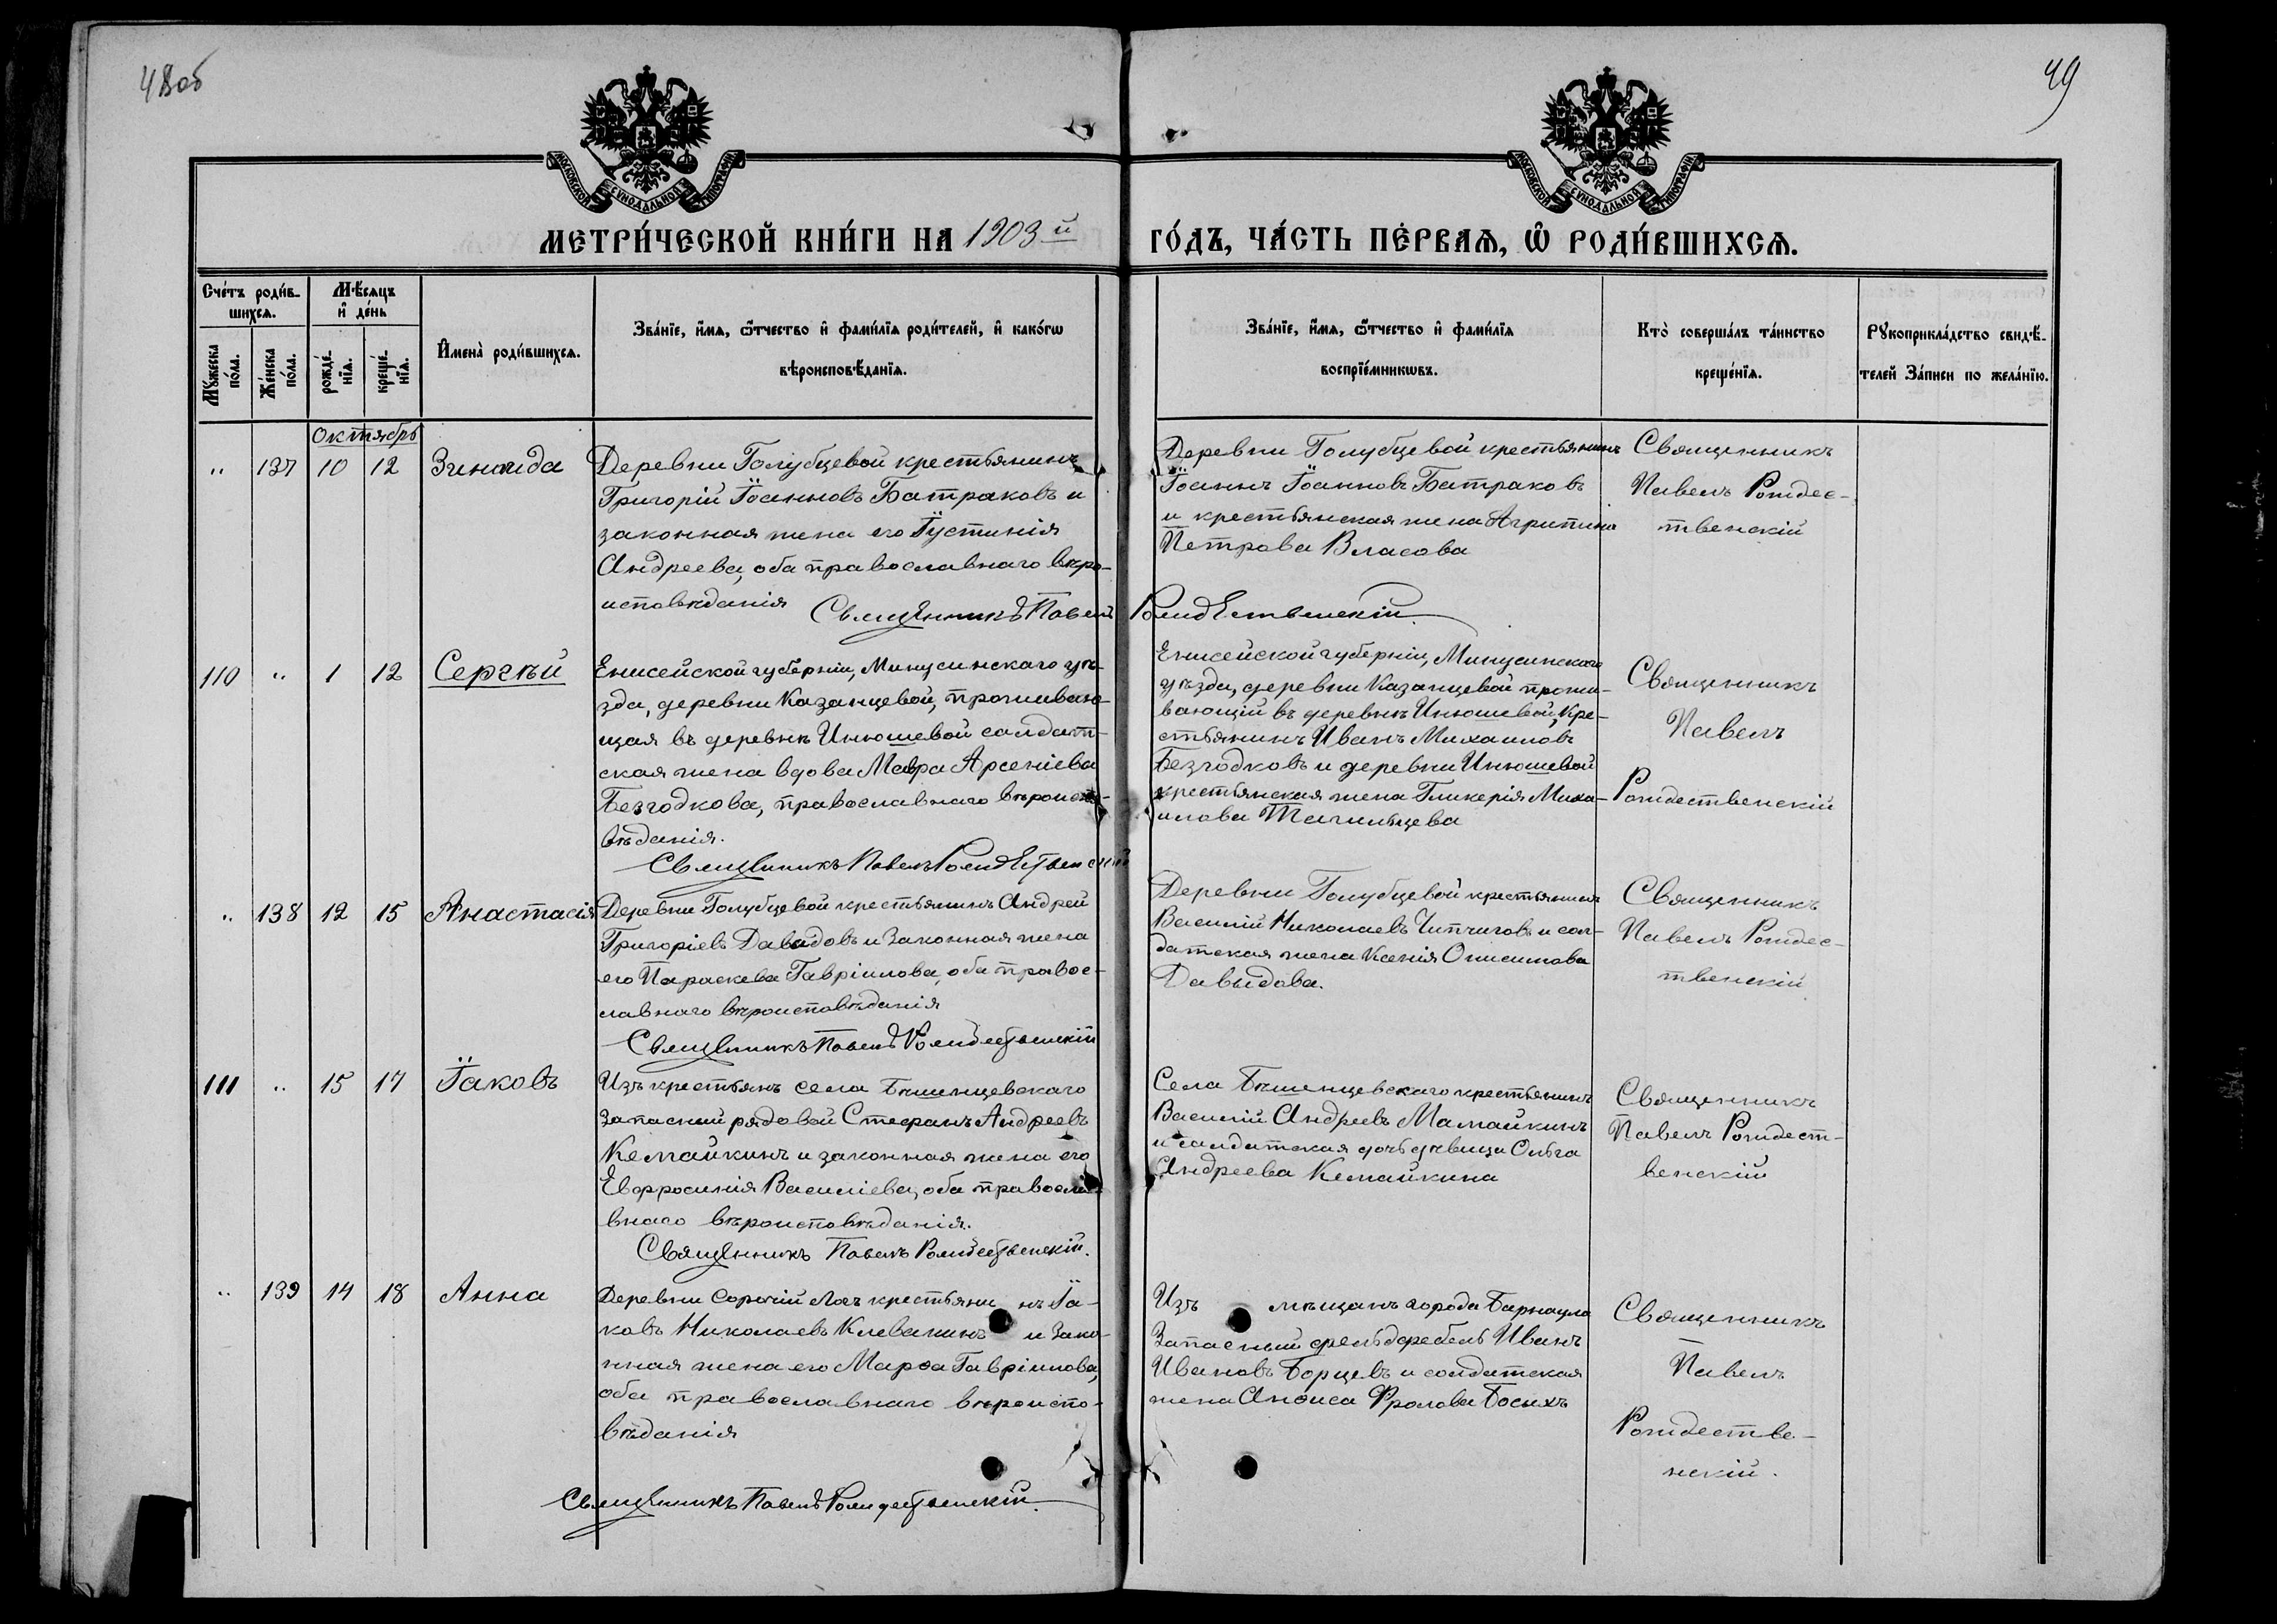 48об
49
МОСКОВСКОЙ СѴНОДАЛЬНОЙ ТИПОГРАФІИ
МОСКОВСКОЙ СѴНОДАЛЬНОЙ ТИПОГРАФІИ
МЕТРИ́ЧЕСКОЙ КНИ́ГИ НА 1903й
ГО́ДЪ, ЧА́СТЬ ПЕ́РВАѦ, Ѡ҆ РОДИ́ВШИХСѦ.
Сче́тъ роди́в-
шихсѧ.
Мꙋ́жеска
по́ла.
Же́нска
по́ла.
Мѣ́сяцъ
и҆ де́нь
рожде́-
нїѧ.
креще́-
нїѧ.
И҆мена̀ роди́вшихсѧ.
Зва́нїе, и҆́мѧ, ѻ҆́тчество и҆ фами́лїѧ роди́телей, и҆ како́гѡ
вѣроисповѣ́данїѧ.
Зва́нїе, и҆́мѧ, ѻ҆́тчество и҆ фами́лїѧ
воспрїе́мникѡвъ.
Кто̀ соверша́лъ та́инство
креще́нїѧ.
Рꙋкоприкла́дство свидѣ́-
телей За́писи по жела́нїю.
Октябрь
" 137 10 12 Зинаида
Деревни Голубцевой крестьянинъ
Григорій Іоанновъ Батраковъ и
законная жена его Іустинія
Андреева, оба православнаго вѣро-
исповѣданія
Деревни Голубцевой крестьянинъ
Іоаннъ Іоанновъ Батраковъ
и крестьянская жена Агрипина
Петрова Власова
Священникъ
Павелъ Рождес-
твенскій
Священникъ Павелъ Рождественскій
110 " 1 12 Сергѣй
Енисейской губерніи, Минусинскаго уѣ-
зда, деревни Казанцевой, проживаю-
щая въ деревнѣ Инюшевой салдат-
ская жена вдова Мавра Арсеніева
Безгодкова, православнаго вѣроиспо-
вѣданія.
Енисейской губерніи, Минусинскаго
уѣзда, деревни Казанцевой прожи-
вающій въ деревнѣ Инюшевой, кре-
стьянинъ Иванъ Михаиловъ
Безгодковъ и деревни Инюшевой
крестьянская жена Гликерія Миха-
илова Тагильцева
Священникъ
Павелъ
Рождественскій
Священникъ Павелъ Рождественскій
" 138 12 15 Анастасія
Деревни Голубцевой крестьянинъ Андрей
Григоріевъ Давыдовъ и законная жена
его Параскева Гавріилова, оба правос-
лавнаго вѣроисповѣданія
Деревни Голубцевой крестьянинъ
Василій Николаевъ Чипчиговъ и сол-
датская жена Ксенія Онисимова
Давыдова.
Священникъ
Павелъ Рождес-
твенскій
Священникъ Павелъ Рождественскій
111 " 15 17 Іаковъ
Изъ крестьянъ села Бѣшенцевскаго
Запасный рядовой Стефанъ Андреевъ
Кемайкинъ и законная жена его
Евфросинія Василіева, оба правосла-
внаго вѣроисповѣданія.
Села Бѣшенцевскаго крестьянинъ
Василій Андреевъ Мамайкинъ
и салдатская дочь дѣвица Ольга
Андреева Кемайкина
Священникъ
Павелъ Рождест-
венскій
Священникъ Павелъ Рождественскій.
" 139 14 18 Анна
Деревни Сорочій Логъ крестьянинъ Іа-
ковъ Николаевъ Клевакинъ и зако-
нная жена его Марѳа Гавріилова,
оба православнаго вѣроиспо-
вѣданія
Изъ мѣщанъ города Барнаула
Запасный фельдфебель Иванъ
Ивановъ Борцевъ и солдатская
жена Анѳиса Фролова Босыхъ
Священникъ
Павелъ
Рождестве-
нскій.
Священникъ Павелъ Рождественскій